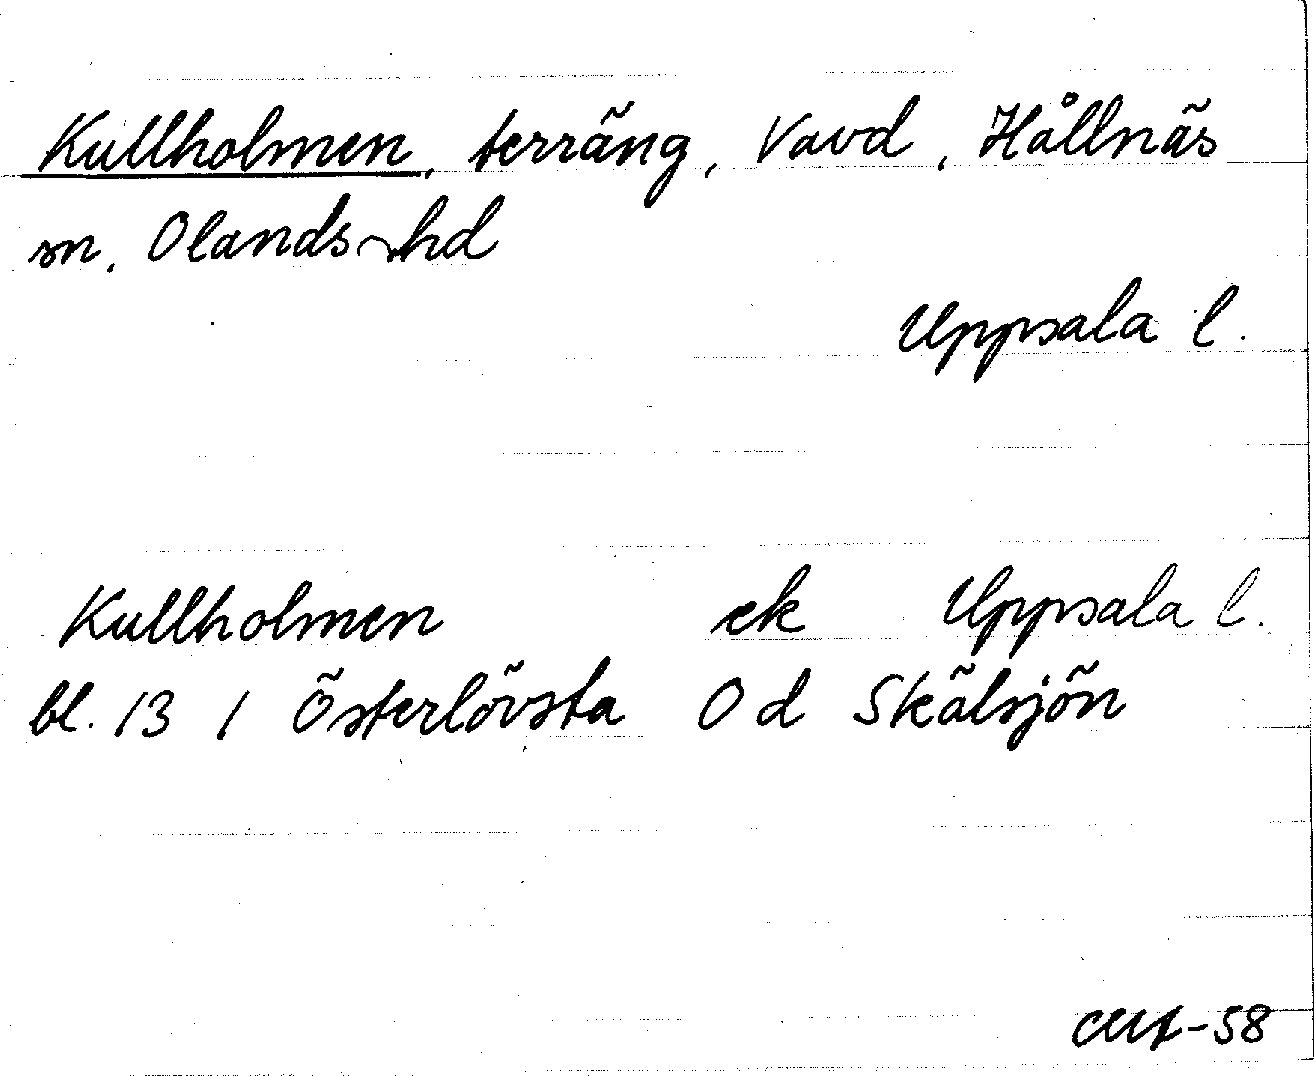 Kullholmen, terräng, Vavd, Hållnäs
sn, Olands hd
Uppsala l.
Kullholmen ek Uppsala l.
bl. 13 / Österlövsta Od Skälsjön
-58